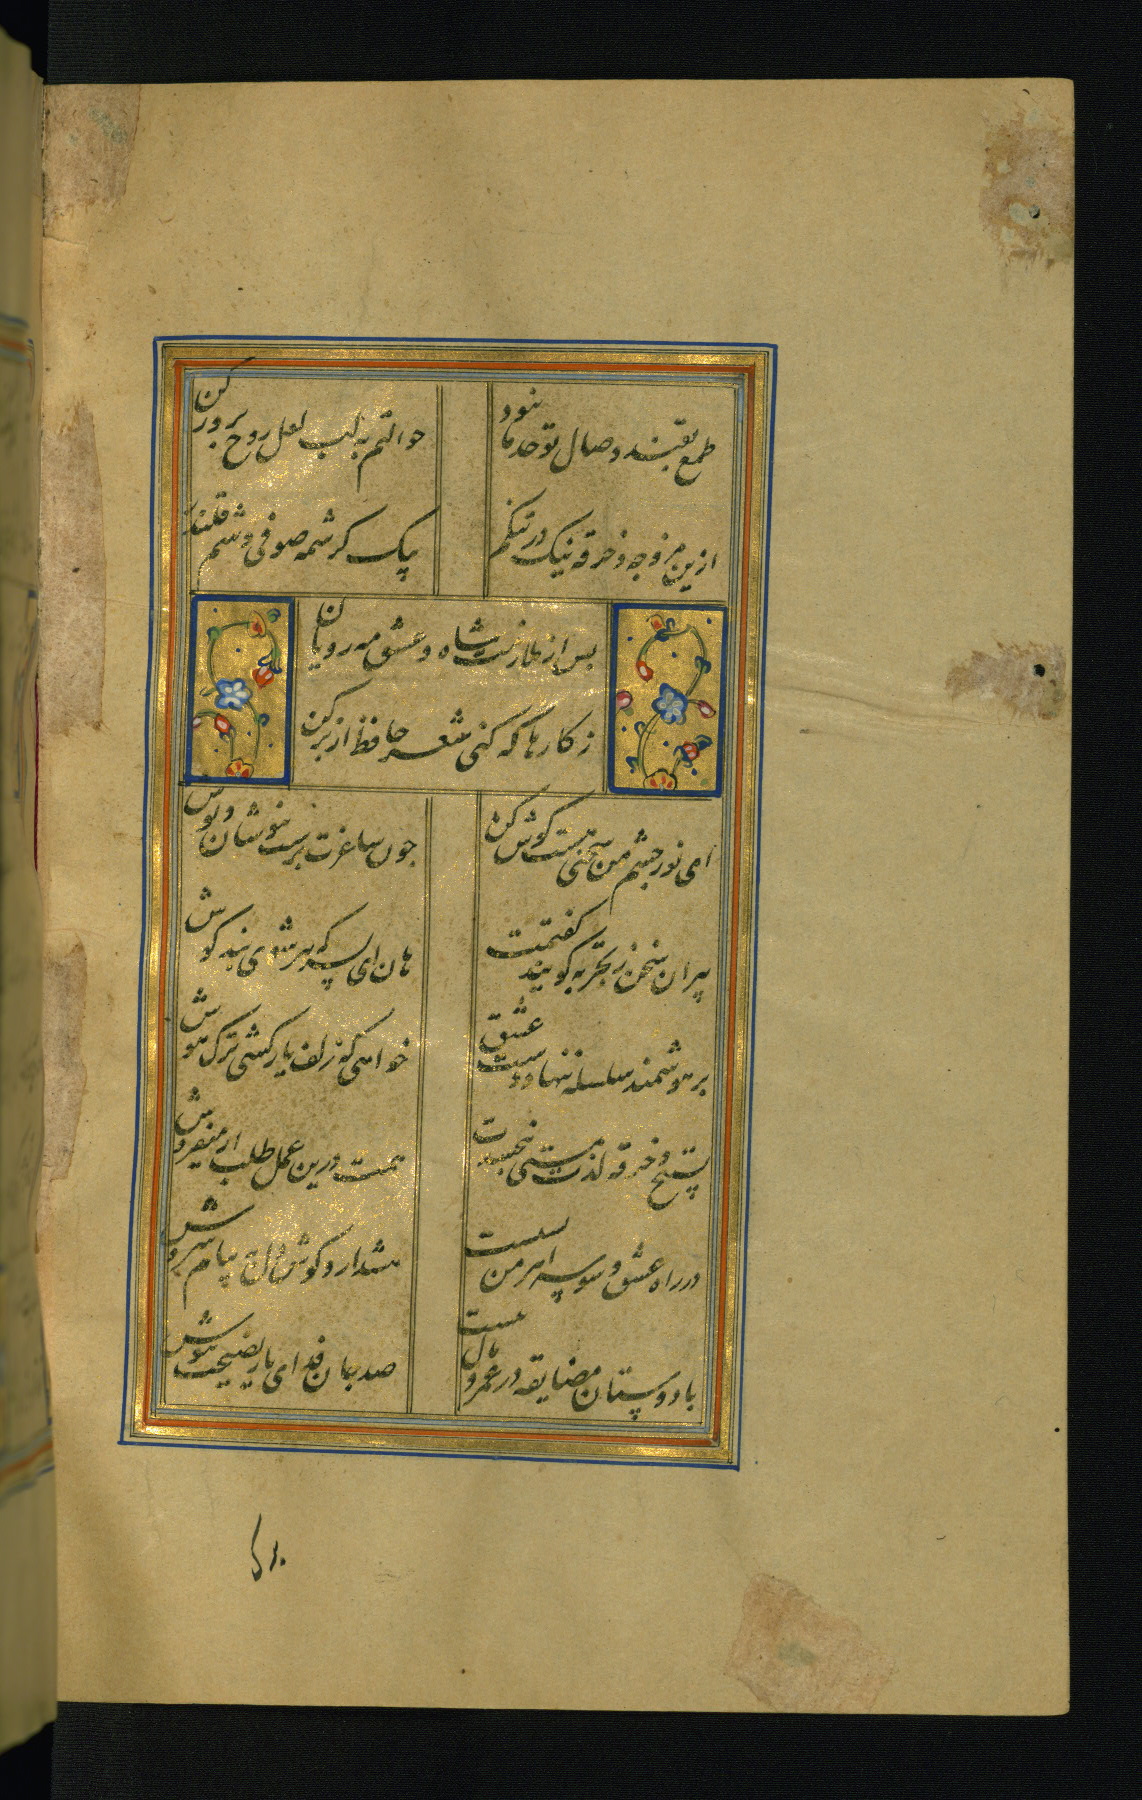 طمع بقند وصال تو حد ما نبود
حوالتم به لب لعل روح پرور کن
ازین مزوجه و خرقه نیک در تنکم
بیک کرشمه صوفی وشم قلندر کن
بس از ملازمت شاه و عشق مه رویان
ز کارها که کنی شعر حافظ از بر کن
ای نور چشم من سخنی هست کوش کن
چون ساغرت پرست بنوشان و نوش
پیران سخن ز تجربه کویند کفتمت
هان ای پسر که پیر شوی پند کوش
بر هوشمند سلسله ننهاد دست عشق
خواهی که زلف یار کشی ترک هوش
تسبیح و خرقه لذت مستی نبخشدت
همت درین عمل طلب از میفروش
در راه عشق وسوسه اهرمن بسیست
هشدار و کوش دل به پیام سروش
با دوستان مضایقه در عمر و مال نیست
صد جان فدای یار نصیحت نیوش
برک